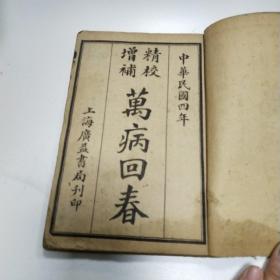 中華民國四年
精校
增補
萬病回春
上海廣益書局刊印